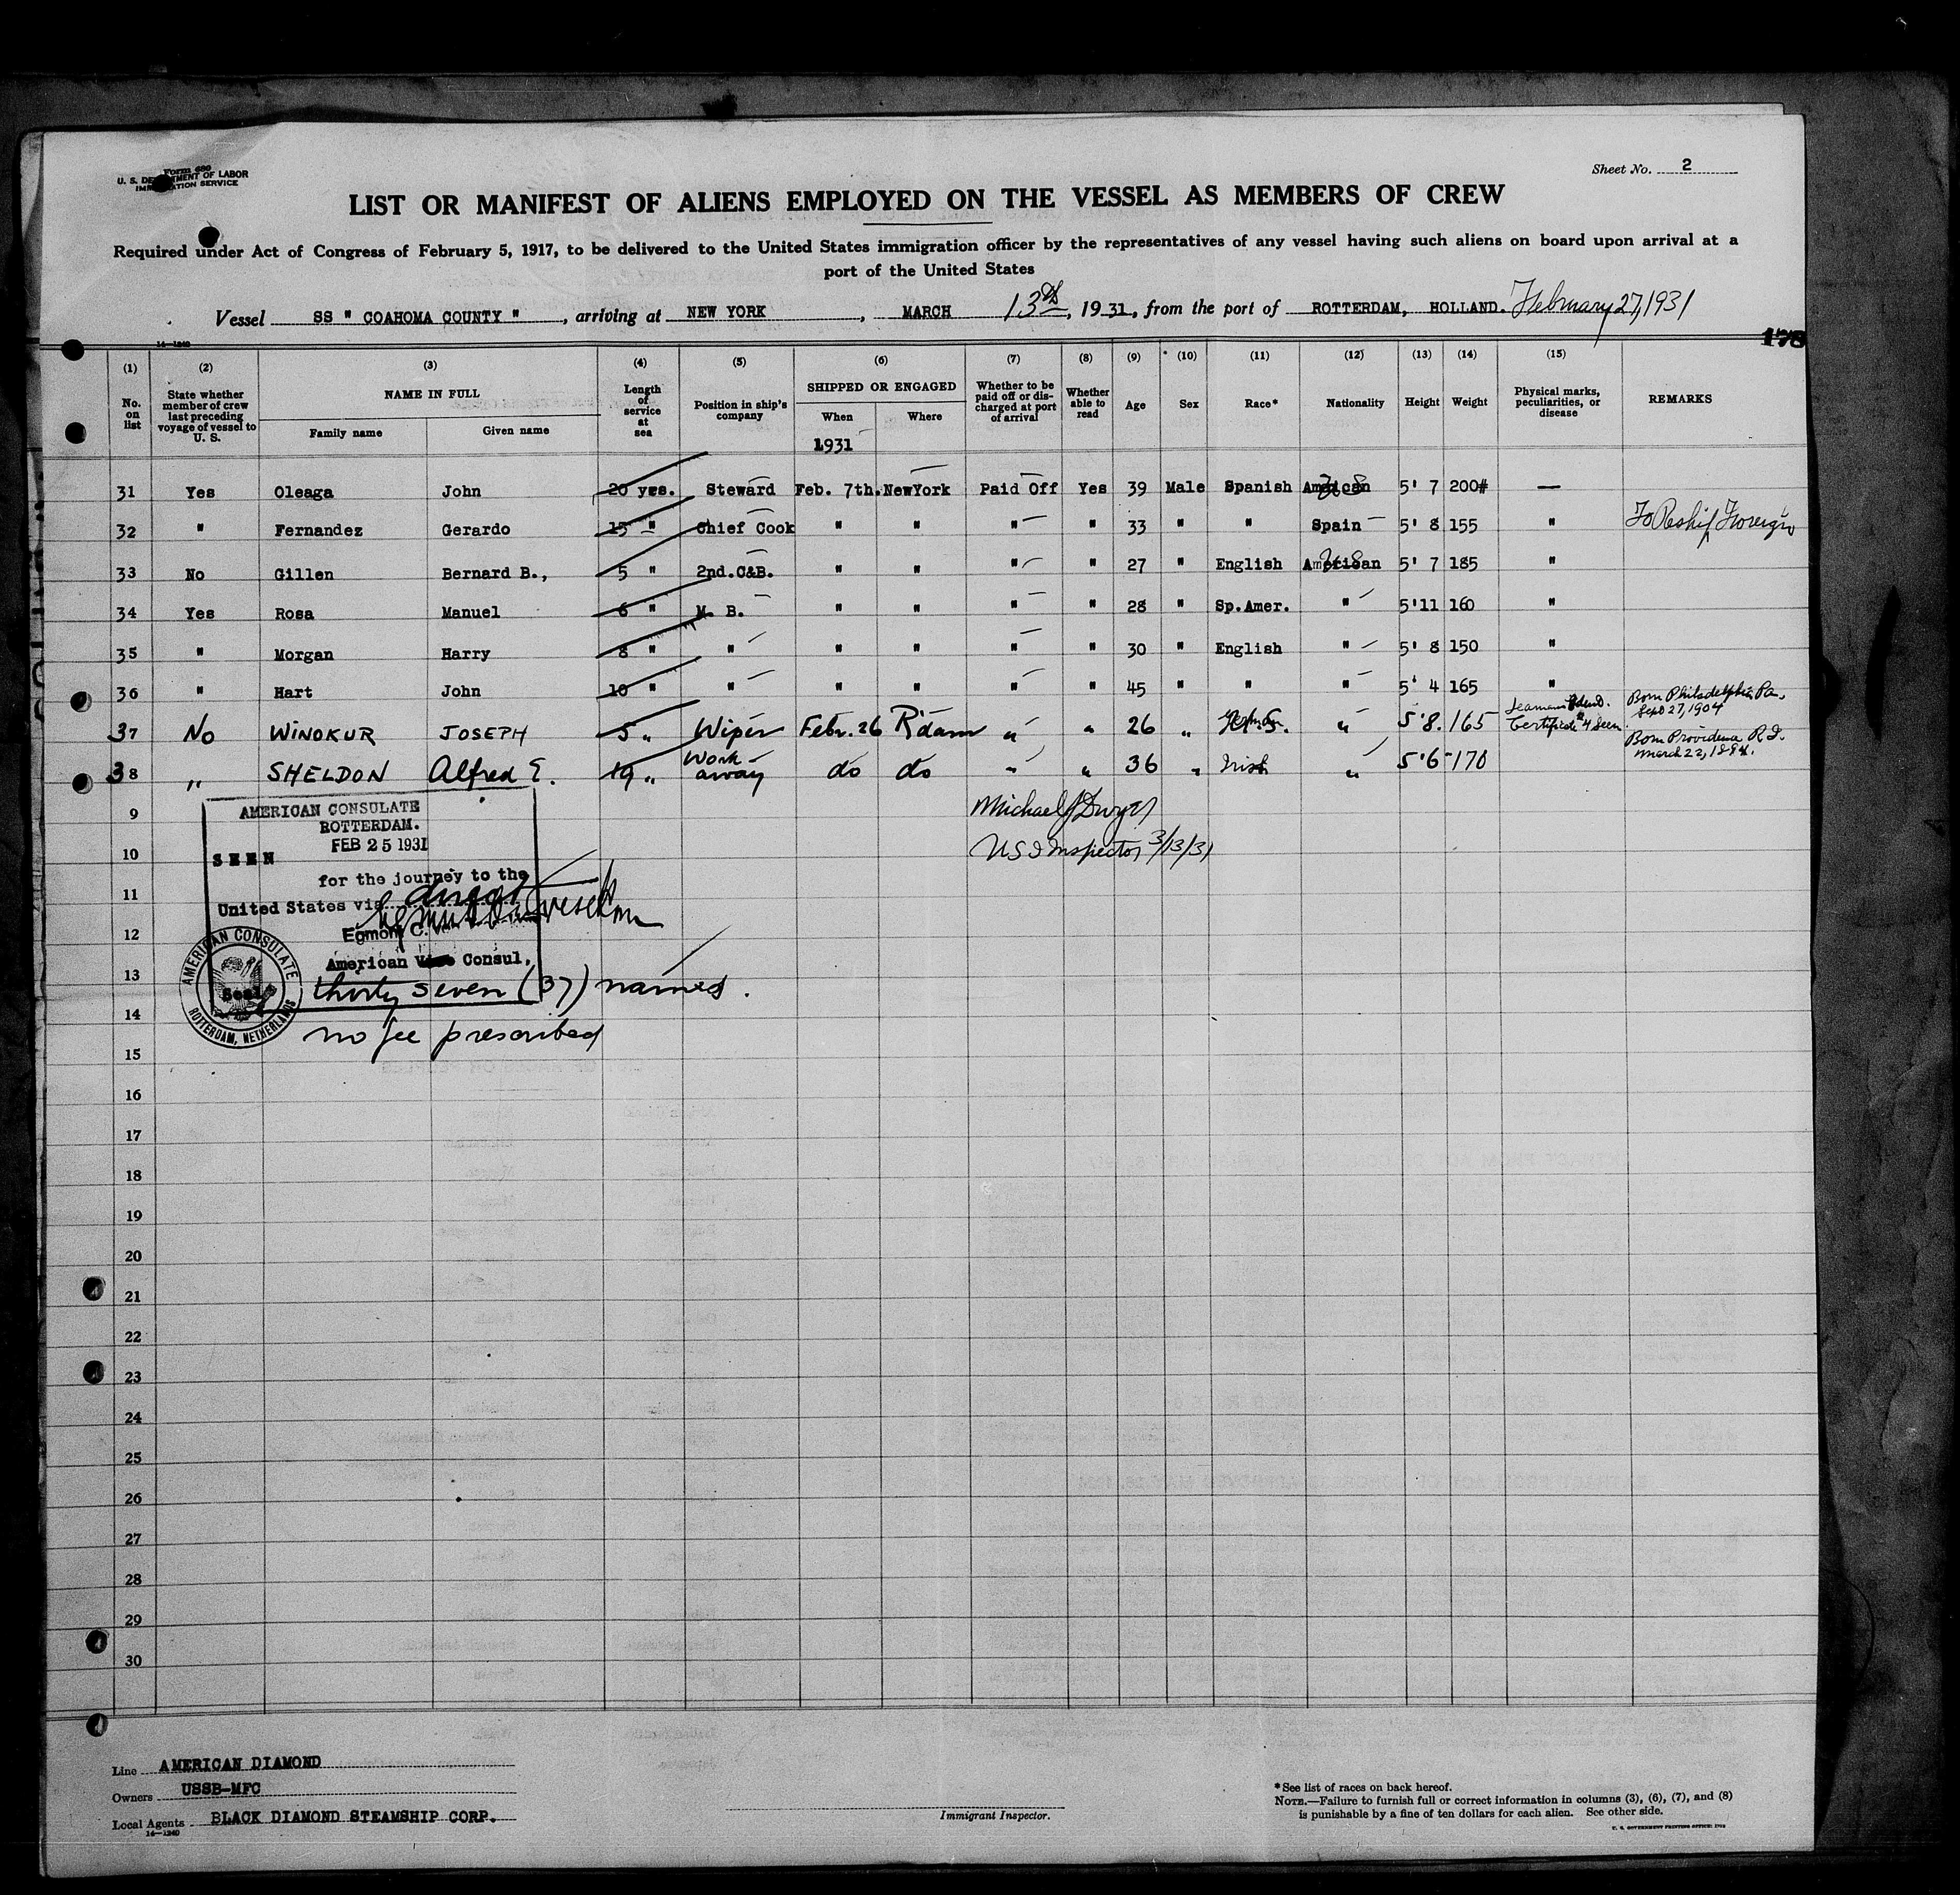 Form 680
U. S. DEPARTMENT OF LABOR
IMMIGRATION SERVICE
Sheet No. 2
LIST OR MANIFEST OF ALIENS EMPLOYED ON THE VESSEL AS MEMBERS OF CREW
Required under Act of Congress of February 5, 1917, to be delivered to the United States immigration officer by the representatives of any vessel having such aliens on board upon arrival at a
port of the United States
Vessel SS " COAHOMA COUNTY " , arriving at NEW YORK , MARCH 13th, 1931, from the port of ROTTERDAM, HOLLAND. February 27, 1931
14-1240
178
(1) (2) (3) (4) (5) (6) (7) (8) (9) (10) (11) (12) (13) (14) (15)
No. on list State whether member of crew last preceding voyage of vessel to U. S. NAME IN FULL Family name Given name Length of service at sea Position in ship's company SHIPPED OR ENGAGED When Where Whether to be paid off or discharged at port of arrival Whether able to read Age Sex Race* Nationality Height Weight Physical marks, peculiarities, or disease REMARKS
1931
31 Yes Oleaga John 20 yrs. Steward Feb. 7th. NewYork Paid Off Yes 39 Male Spanish American 5' 7 200# —
32 " Fernandez Gerardo 15 " Chief Cook " " " " 33 " " Spain 5' 8 155 " To Reship Foreign
33 No Gillen Bernard B., 5 " 2nd.C&B. " " " " 27 " English American 5' 7 185 "
34 Yes Rosa Manuel 6 " M. B. " " " " 28 " Sp.Amer. " 5'11 160 "
35 " Morgan Harry 8 " " " " " " 30 " English " 5' 8 150 "
36 " Hart John 10 " " " " " " 45 " " " 5' 4 165 "
37 No WINOKUR JOSEPH 5 " Wiper Febr. 26 R'dam " " 26 " " 5'8. 165 Seamans Certificate #4 Seen Born Philadelphia Pa. Sept 27, 1904
38 " SHELDON Alfred E. 19 " Work away do do " " 36 " Irish " 5'6 170 Born Providence R.I. March 22, 1894.
9
Michael J Dwyer
10
US I Inspector 3/13/31
AMERICAN CONSULATE
ROTTERDAM.
FEB 25 1931
SEEN
for the journey to the
11
United States via direct
12
Egmont C.
American Vice Consul,
AMERICAN CONSULATE
Seal
ROTTERDAM, NETHERLANDS
13
thirty seven (37) names.
14
no fee prescribed
15
16
17
18
19
20
21
22
23
24
25
26
27
28
29
30
Line AMERICAN DIAMOND
Owners USSB-MFC
Local Agents BLACK DIAMOND STEAMSHIP CORP.
14-1240
Immigrant Inspector.
*See list of races on back hereof.
NOTE.—Failure to furnish full or correct information in columns (3), (6), (7), and (8)
is punishable by a fine of ten dollars for each alien. See other side.
U. S. GOVERNMENT PRINTING OFFICE: